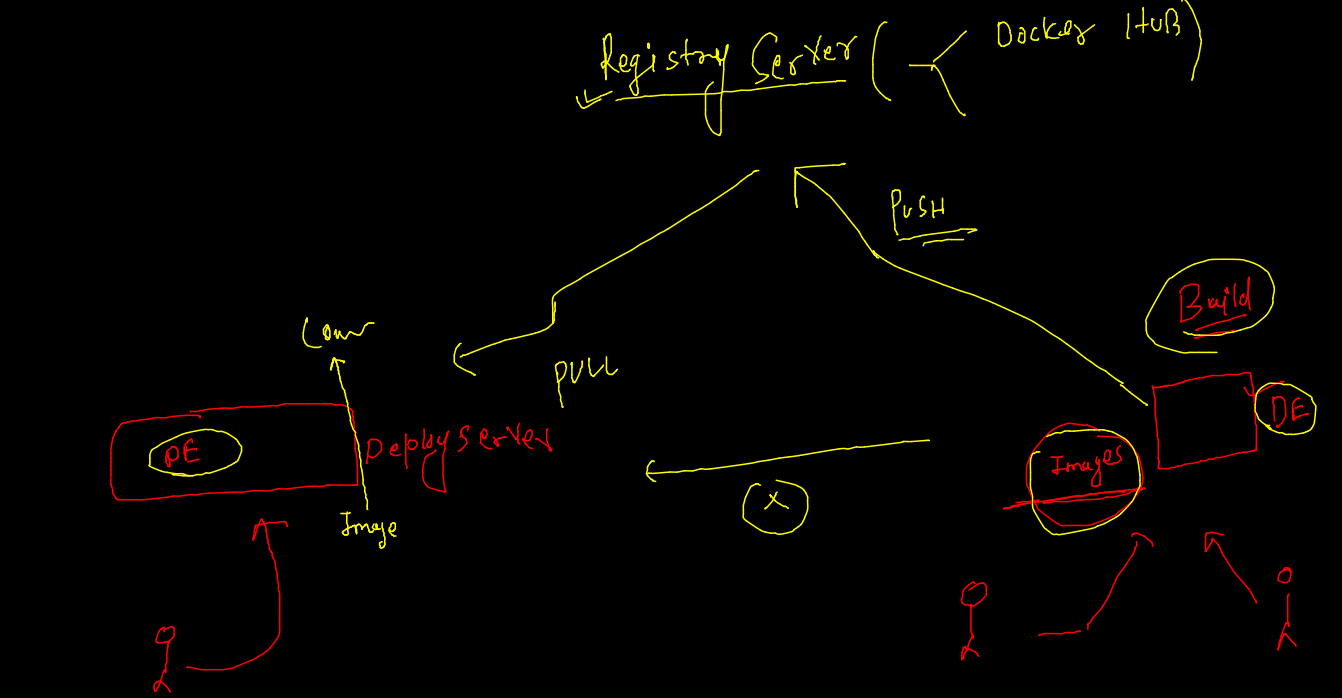 Registry Server ( Docker HUB )
PUSH
Build
Conr
PULL
DE
DE
Deploy Server
Images
X
Image